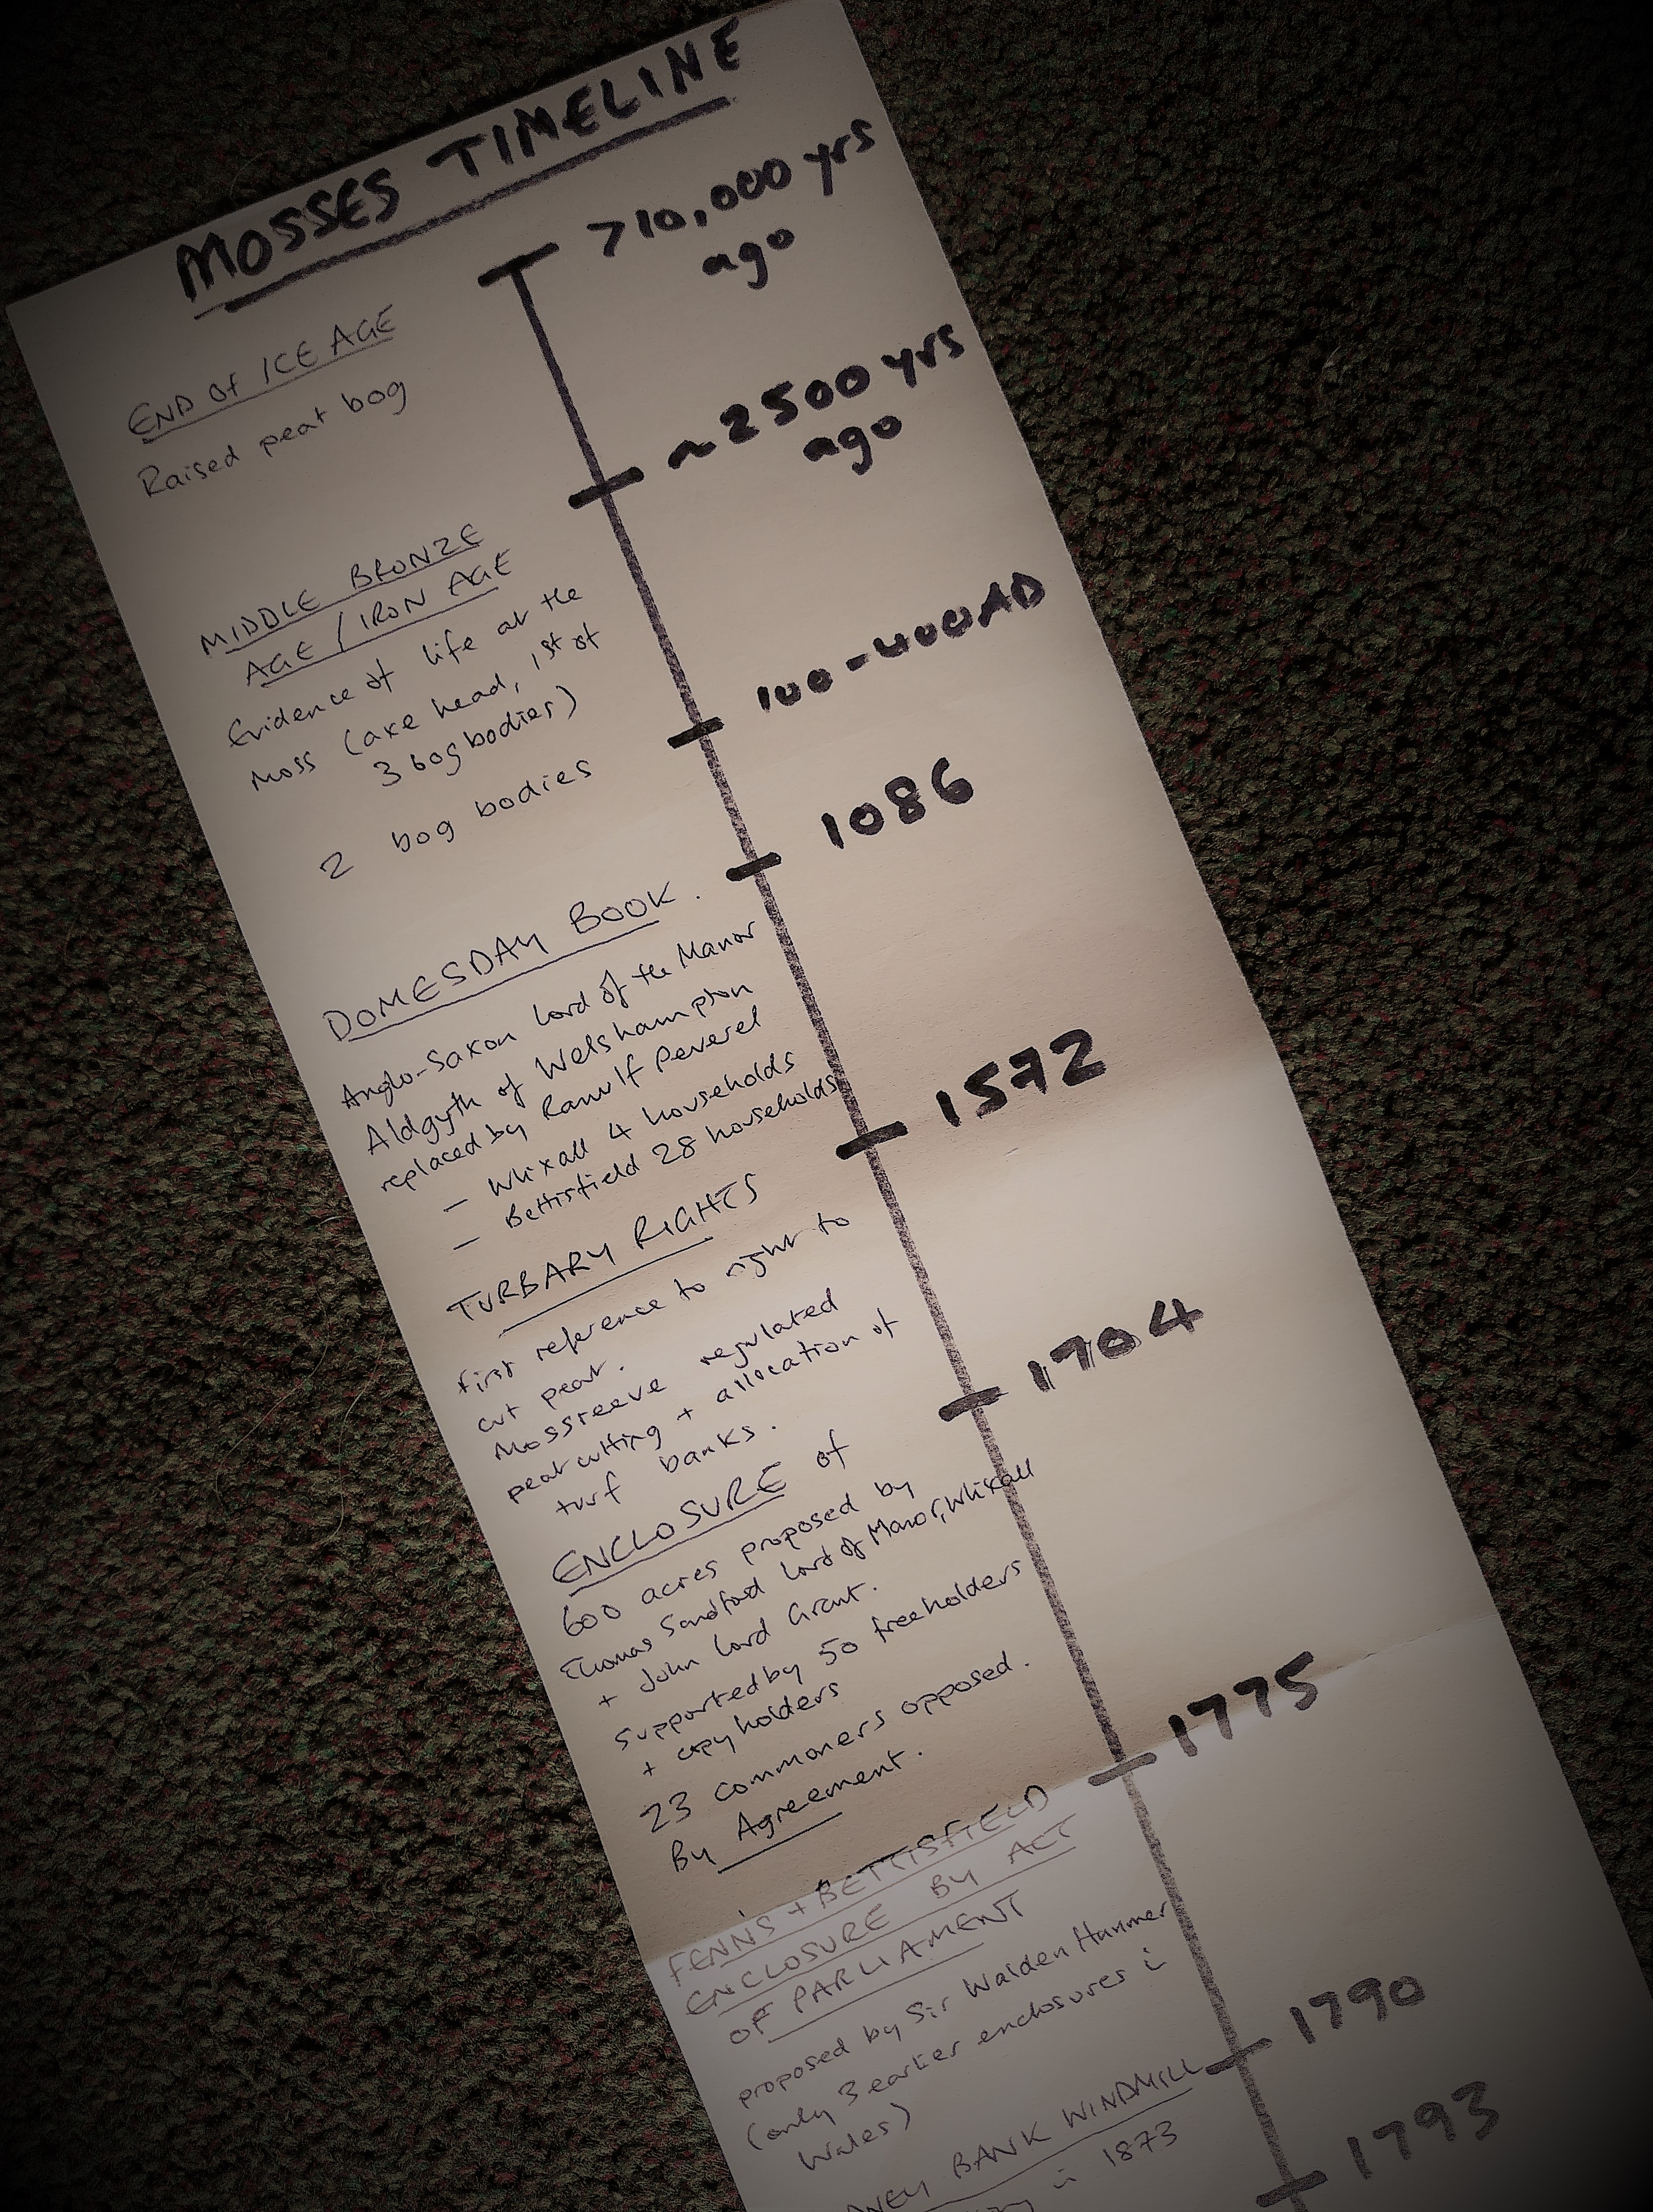 MOSSES TIMELINE
>10,000 yrs
ago
END OF ICE AGE
Raised peat bog
~2500 yrs
ago
MIDDLE BRONZE
AGE / IRON AGE
Evidence of life at the
Moss (axe head, 1st of
3 bog bodies)
100-400AD
2 bog bodies
1086
DOMESDAY BOOK.
Anglo-Saxon Lord of the Manor
Aldgyth of Welshampton
replaced by Ranulf Peverel
- Whixall 4 households
- Bettisfield 28 households
1572
TURBARY RIGHTS
First reference to right to
cut peat.
Mossreeve regulated
peat cutting + allocation of
turf banks.
1704
ENCLOSURE of
600 acres proposed by
Thomas Sandford Lord of Manor, Whixall
+ John Lord Grant.
Supported by 50 freeholders
+ copyholders
23 commoners opposed.
By Agreement.
1775
FENNS + BETTISFIELD
ENCLOSURE BY ACT
OF PARLIAMENT
proposed by Sir Walden Hanmer
(only 3 earlier enclosures i
Wales)
1790
BANK WINDMILL
i 1873
1793